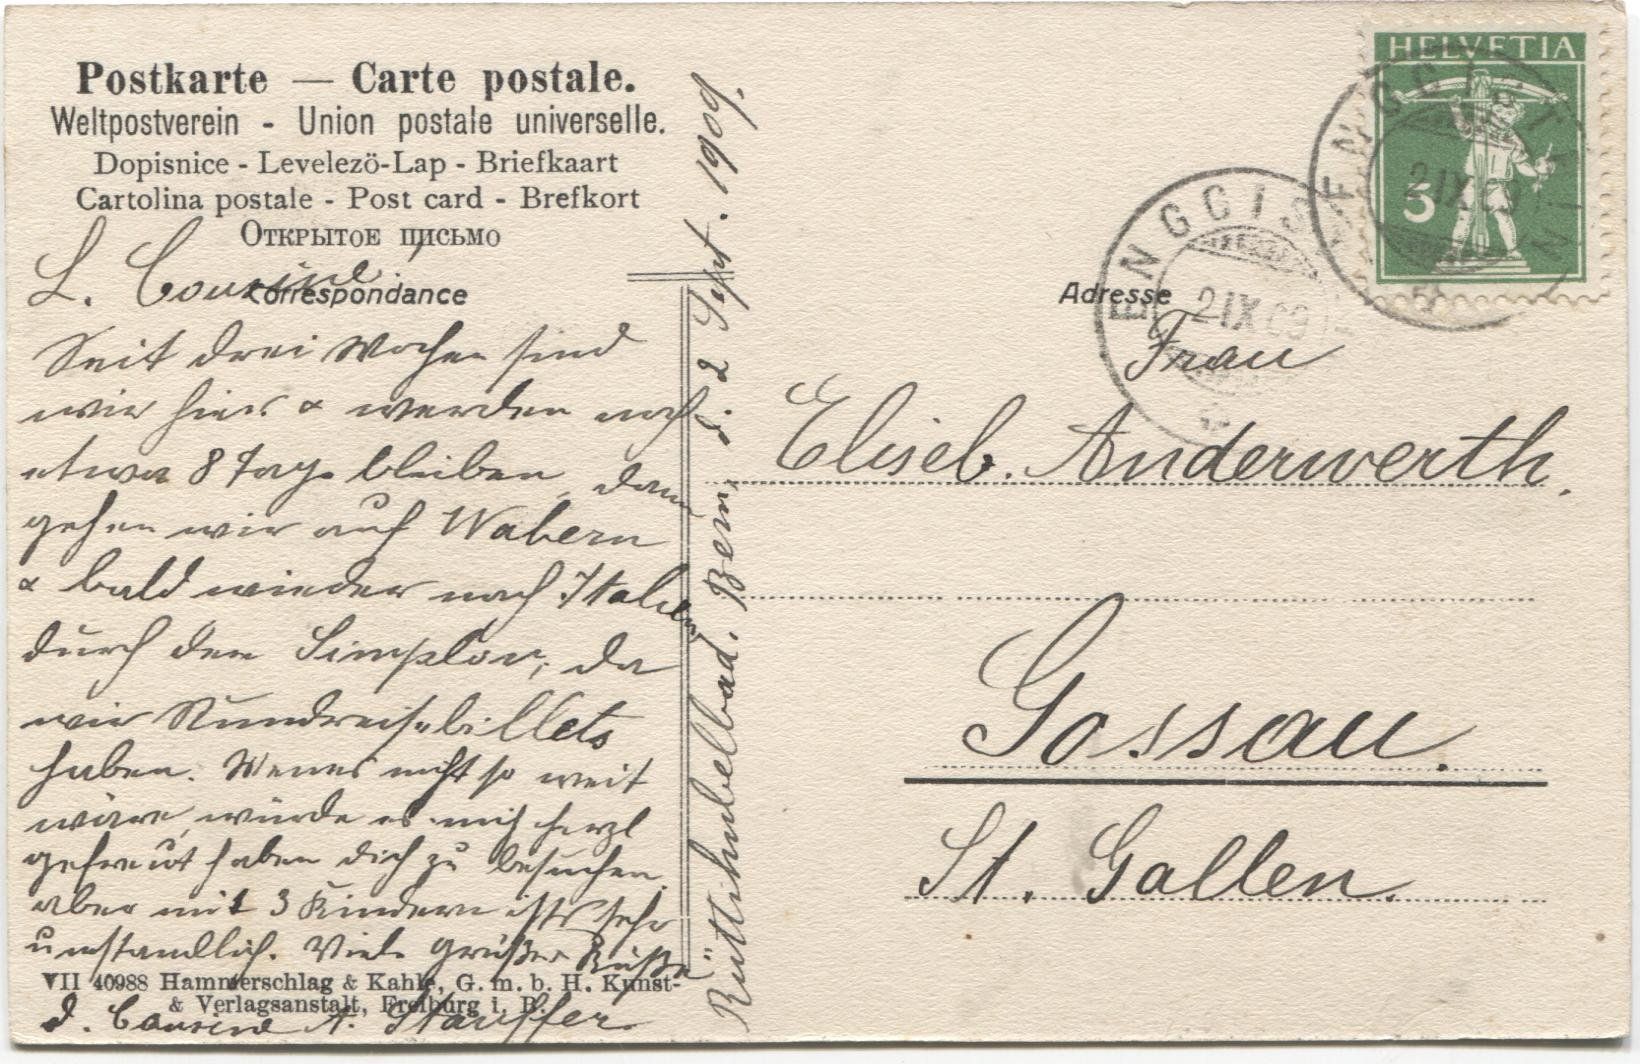 Postkarte — Carte postale.
Weltpostverein - Union postale universelle.
Dopisnice - Levelezö-Lap - Briefkaart
Cartolina postale - Post card - Brefkort
Открытое письмо
Correspondance
L. Cousine.
Seit drei Wochen sind
wir hier & werden noch
etwa 8 Tage bleiben, dann
gehen wir auf Wabern
& bald wieder nach Italien,
durch den Simplon, da
wir Rundreisebillets
haben. Wenns nicht so weit
wäre, würde es mich herzl
gefreut haben dich zu besuchen,
aber mit 3 Kindern ists sehr
umständlich. Viele Grüße & Küße
d. Cousine A. Stauffer.
VII 40988 Hammerschlag & Kahle, G. m. b. H. Kunst-
& Verlagsanstalt, Freiburg i. B.
Rüttihubelbad. Bern, d. 2 Sept. 1909.
HELVETIA
5
2 IX 09
ENGGISTEIN
ENGGIS
2 IX 09
Adresse
Frau
Eliseb. Anderwerth.
Gossau.
St. Gallen.